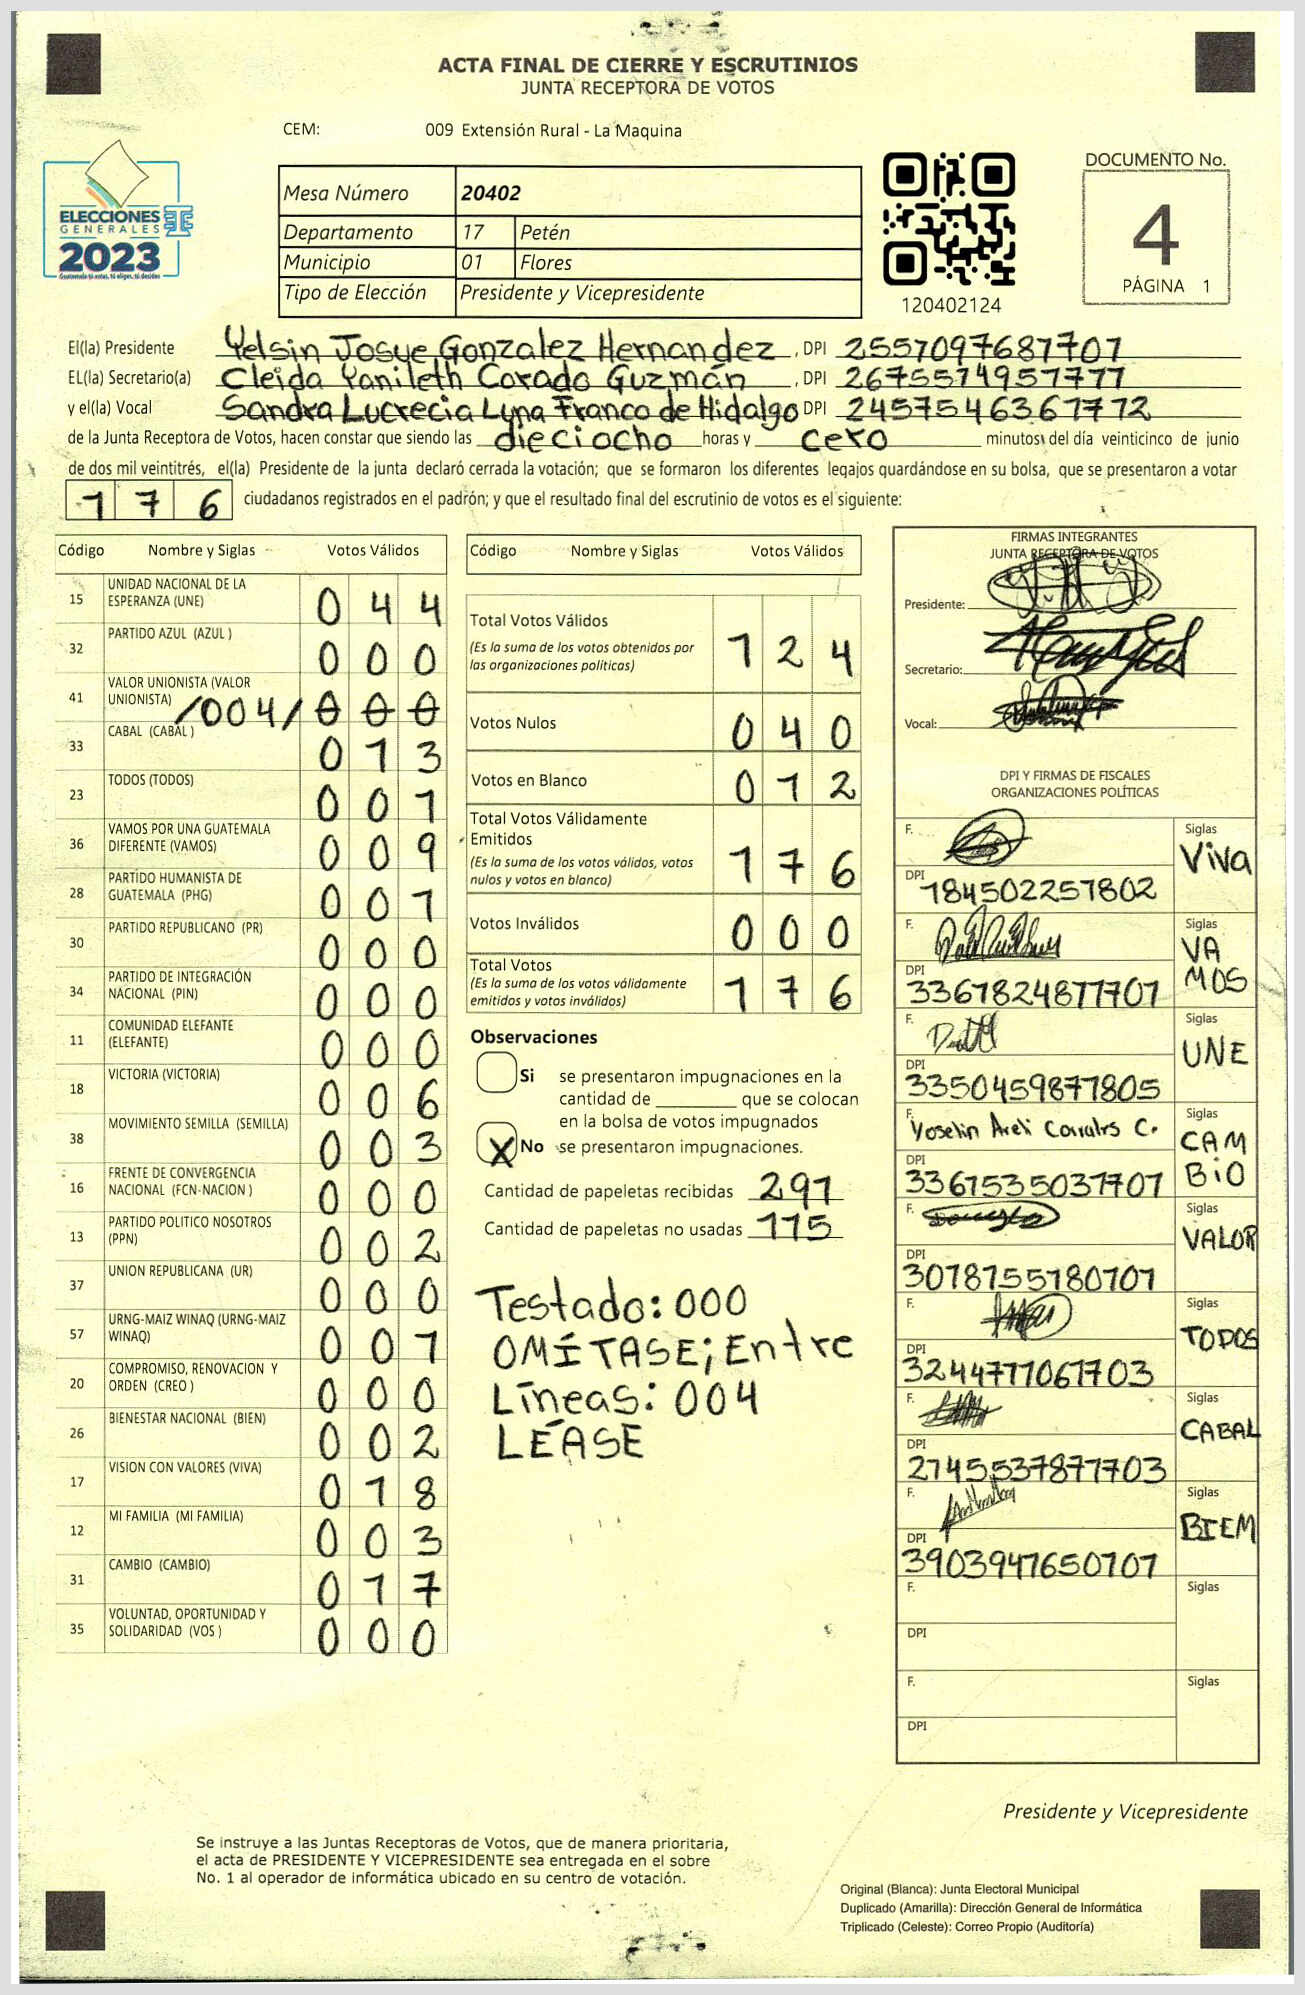 ACTA FINAL DE CIERRE Y ESCRUTINIOS
JUNTA RECEPTORA DE VOTOS
CEM: 009 Extensión Rural - La Maquina
ELECCIONES
GENERALES
2023
Mesa Número 20402
Departamento 17 Petén
Municipio 01 Flores
Tipo de Elección Presidente y Vicepresidente
120402124
DOCUMENTO No.
4
PÁGINA 1
El(la) Presidente Yelsin Josue Gonzalez Hernandez, DPI 2557097681707
EL(la) Secretario(a) Cleida Yanileth Corado Guzmán, DPI
y el(la) Vocal Sandra Lucrecia Luna Franco de Hidalgo DPI
de la Junta Receptora de Votos, hacen constar que siendo las dieciocho horas y cero minutos del día veinticinco de junio
de dos mil veintitrés, el(la) Presidente de la junta declaró cerrada la votación; que se formaron los diferentes legajos quardándose en su bolsa, que se presentaron a votar
176 ciudadanos registrados en el padrón; y que el resultado final del escrutinio de votos es el siguiente:
Código Nombre y Siglas Votos Válidos
15 UNIDAD NACIONAL DE LA ESPERANZA (UNE) 044
32 PARTIDO AZUL (AZUL ) 000
41 VALOR UNIONISTA (VALOR UNIONISTA) /004/ 000
33 CABAL (CABAL ) 013
23 TODOS (TODOS) 001
36 VAMOS POR UNA GUATEMALA DIFERENTE (VAMOS) 009
28 PARTIDO HUMANISTA DE GUATEMALA (PHG) 001
30 PARTIDO REPUBLICANO (PR) 000
34 PARTIDO DE INTEGRACIÓN NACIONAL (PIN) 000
11 COMUNIDAD ELEFANTE (ELEFANTE) 000
18 VICTORIA (VICTORIA) 006
38 MOVIMIENTO SEMILLA (SEMILLA) 003
16 FRENTE DE CONVERGENCIA NACIONAL (FCN-NACION ) 000
13 PARTIDO POLITICO NOSOTROS (PPN) 002
37 UNION REPUBLICANA (UR) 000
57 URNG-MAIZ WINAQ (URNG-MAIZ WINAQ) 001
20 COMPROMISO, RENOVACION Y ORDEN (CREO ) 000
26 BIENESTAR NACIONAL (BIEN) 002
17 VISION CON VALORES (VIVA) 018
12 MI FAMILIA (MI FAMILIA) 003
31 CAMBIO (CAMBIO) 017
35 VOLUNTAD, OPORTUNIDAD Y SOLIDARIDAD (VOS ) 000
Código Nombre y Siglas Votos Válidos
Total Votos Válidos 124
(Es la suma de los votos obtenidos por
las organizaciones políticas)
Votos Nulos 040
Votos en Blanco 012
Total Votos Válidamente
Emitidos 176
(Es la suma de los votos válidos, votos
nulos y votos en blanco)
Votos Inválidos 000
Total Votos 176
(Es la suma de los votos válidamente
emitidos y votos inválidos)
Observaciones
Si se presentaron impugnaciones en la
cantidad de ________ que se colocan
en la bolsa de votos impugnados
X No se presentaron impugnaciones.
Cantidad de papeletas recibidas 291
Cantidad de papeletas no usadas 115
Testado: 000
OMÍTASE; Entre
Líneas: 004
LÉASE
FIRMAS INTEGRANTES
JUNTA RECEPTORA DE VOTOS
Presidente:
Secretario:
Vocal:
DPI Y FIRMAS DE FISCALES
ORGANIZACIONES POLÍTICAS
F. Siglas
Viva
DPI 184502251802
F. Siglas
VA
MOS
DPI 3361824871701
F. Siglas
UNE
DPI 3350459871805
F. Yoselin Areli Corrales C. Siglas
CAM
BiO
DPI 3361535031701
F. Siglas
VALOR
DPI 3018755180101
F. Siglas
TODOS
DPI 3244711061703
F. Siglas
CABAL
DPI 2745537871703
F. Siglas
BIEM
DPI 3903941650101
F. Siglas
DPI
F. Siglas
DPI
Presidente y Vicepresidente
Se instruye a las Juntas Receptoras de Votos, que de manera prioritaria,
el acta de PRESIDENTE Y VICEPRESIDENTE sea entregada en el sobre
No. 1 al operador de informática ubicado en su centro de votación.
Original (Blanca): Junta Electoral Municipal
Duplicado (Amarilla): Dirección General de Informática
Triplicado (Celeste): Correo Propio (Auditoría)